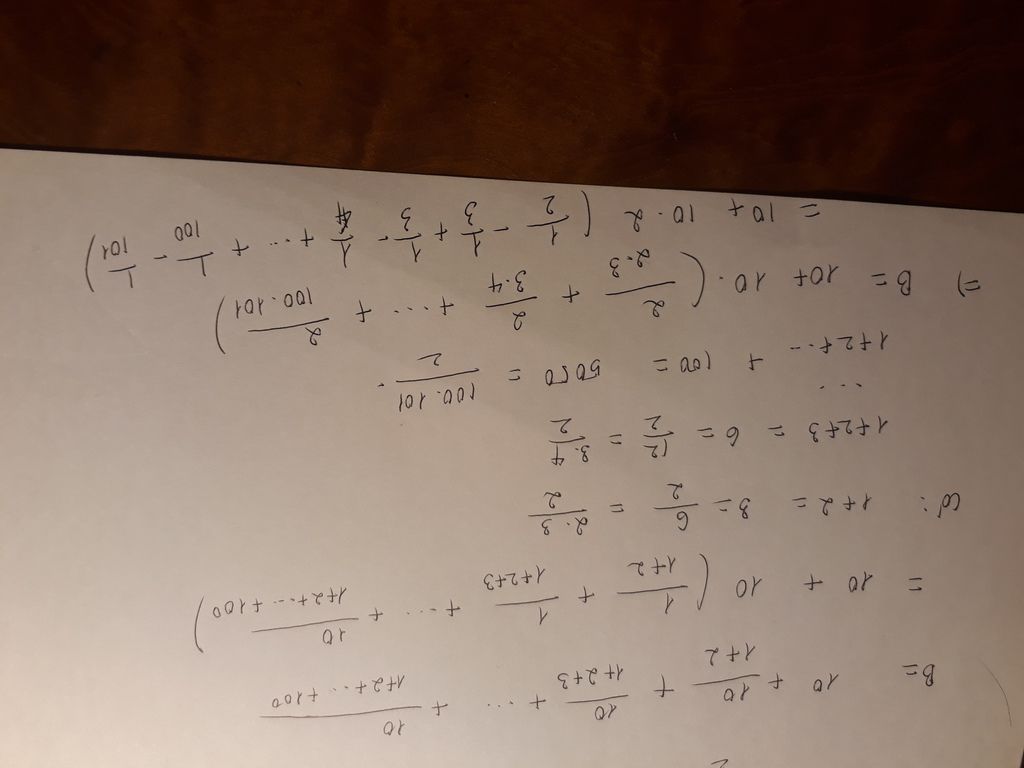 B = 10 + 10/(1+2) + 10/(1+2+3) + ... + 10/(1+2+...+100)
= 10 + 10 (1/(1+2) + 1/(1+2+3) + ... + 10/(1+2+...+100))
có: 1+2 = 3 = 6/2 = 2.3/2
1+2+3 = 6 = 12/2 = 3.4/2
...
1+2+... + 100 = 5050 = 100.101/2.
=) B = 10 + 10.(2/2.3 + 2/3.4 + ... + 2/100.101)
= 10 + 10.2 (1/2 - 1/3 + 1/3 - 1/4 + ... + 1/100 - 1/101)